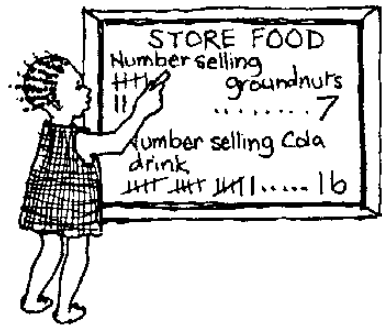 STORE FOOD
Number selling
groundnuts
........ 7
Number selling Cola
drink
..... 16